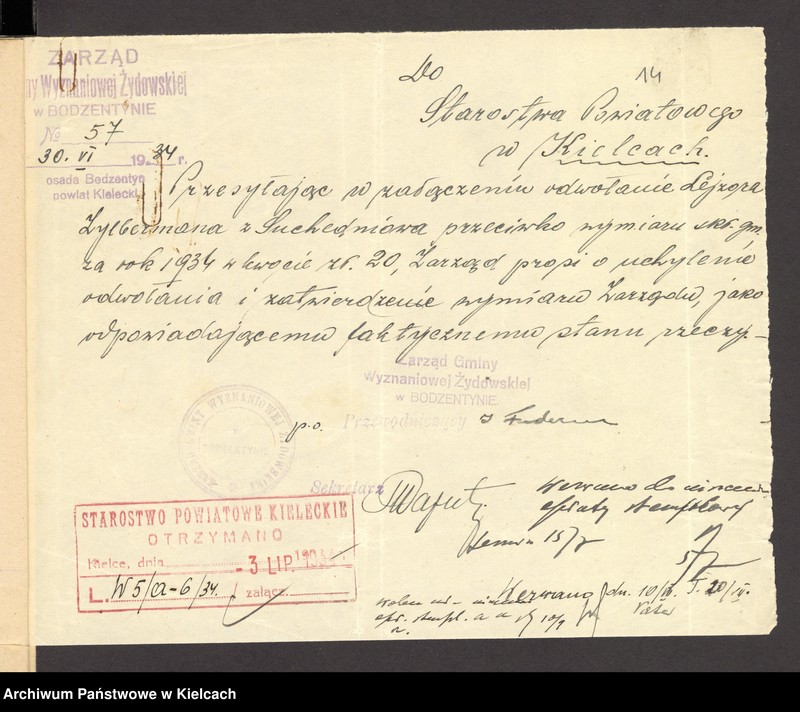 ZARZĄD
ny Wyznaniowej Żydowskiej
w BODZENTYNIE
№ 57
30. VI 1934 r.
osada Bodzentyn
powiat Kielecki
14
Do
Starostwa Powiatowego
w Kielcach.
Przesyłając w załączeniu odwołanie Lejzora
Zylbermana z Suchedniowa przeciwko wymiaru skł. gm.
za rok 1934 w kwocie zł. 20, Zarząd prosi o uchylenie
odwołania i zatwierdzenie wymiaru Zarządu, jako
odpowiadającemu faktycznemu stanu rzeczy.-
Zarząd Gminy
Wyznaniowej Żydowskiej
w BODZENTYNIE.
p.o. Przewodniczący
Sekretarz
Wezwano do
opłaty stemplowej
STAROSTWO POWIATOWE KIELECKIE
OTRZYMANO
Kielce, dnia - 3 LIP. 1934
L. W5/a-6/34. załącz.
Wezwano dn. 10/
Archiwum Państwowe w Kielcach